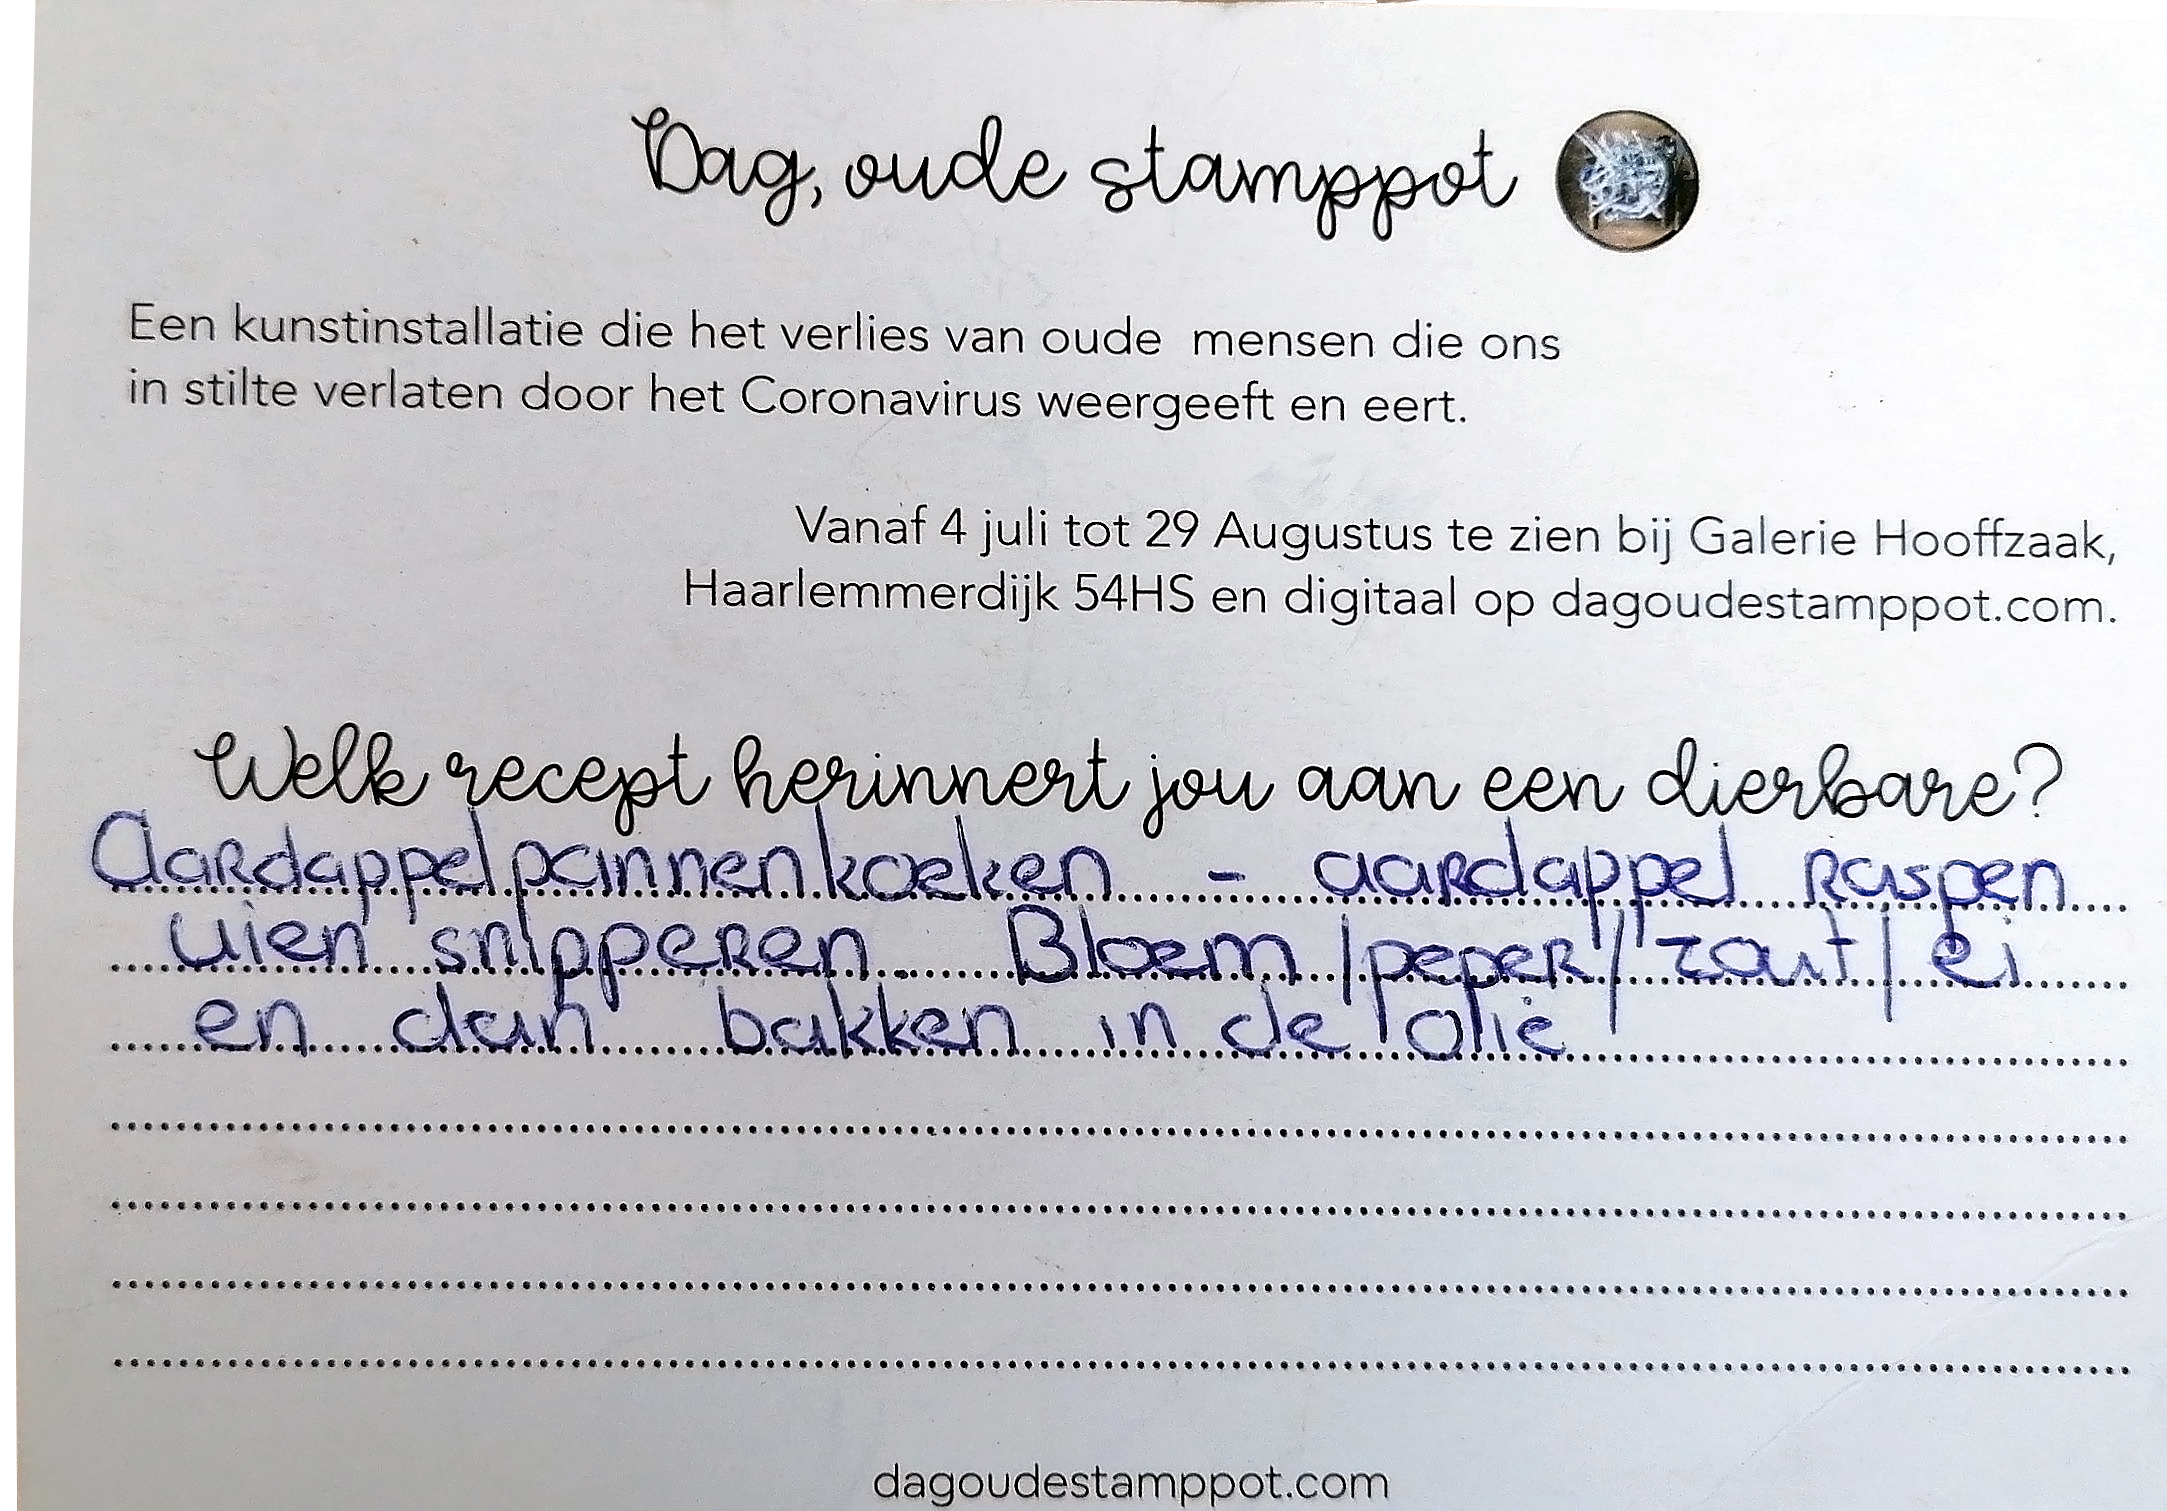 Dag, oude stamppot
Een kunstinstallatie die het verlies van oude mensen die ons
in stilte verlaten door het Coronavirus weergeeft en eert.
Vanaf 4 juli tot 29 Augustus te zien bij Galerie Hooffzaak,
Haarlemmerdijk 54HS en digitaal op dagoudestamppot.com.
Welk recept herinnert jou aan een dierbare?
Aardappelpannenkoeken - aardappel raspen
uien snipperen. Bloem / peper / zout / ei
en dan bakken in de olie
dagoudestamppot.com